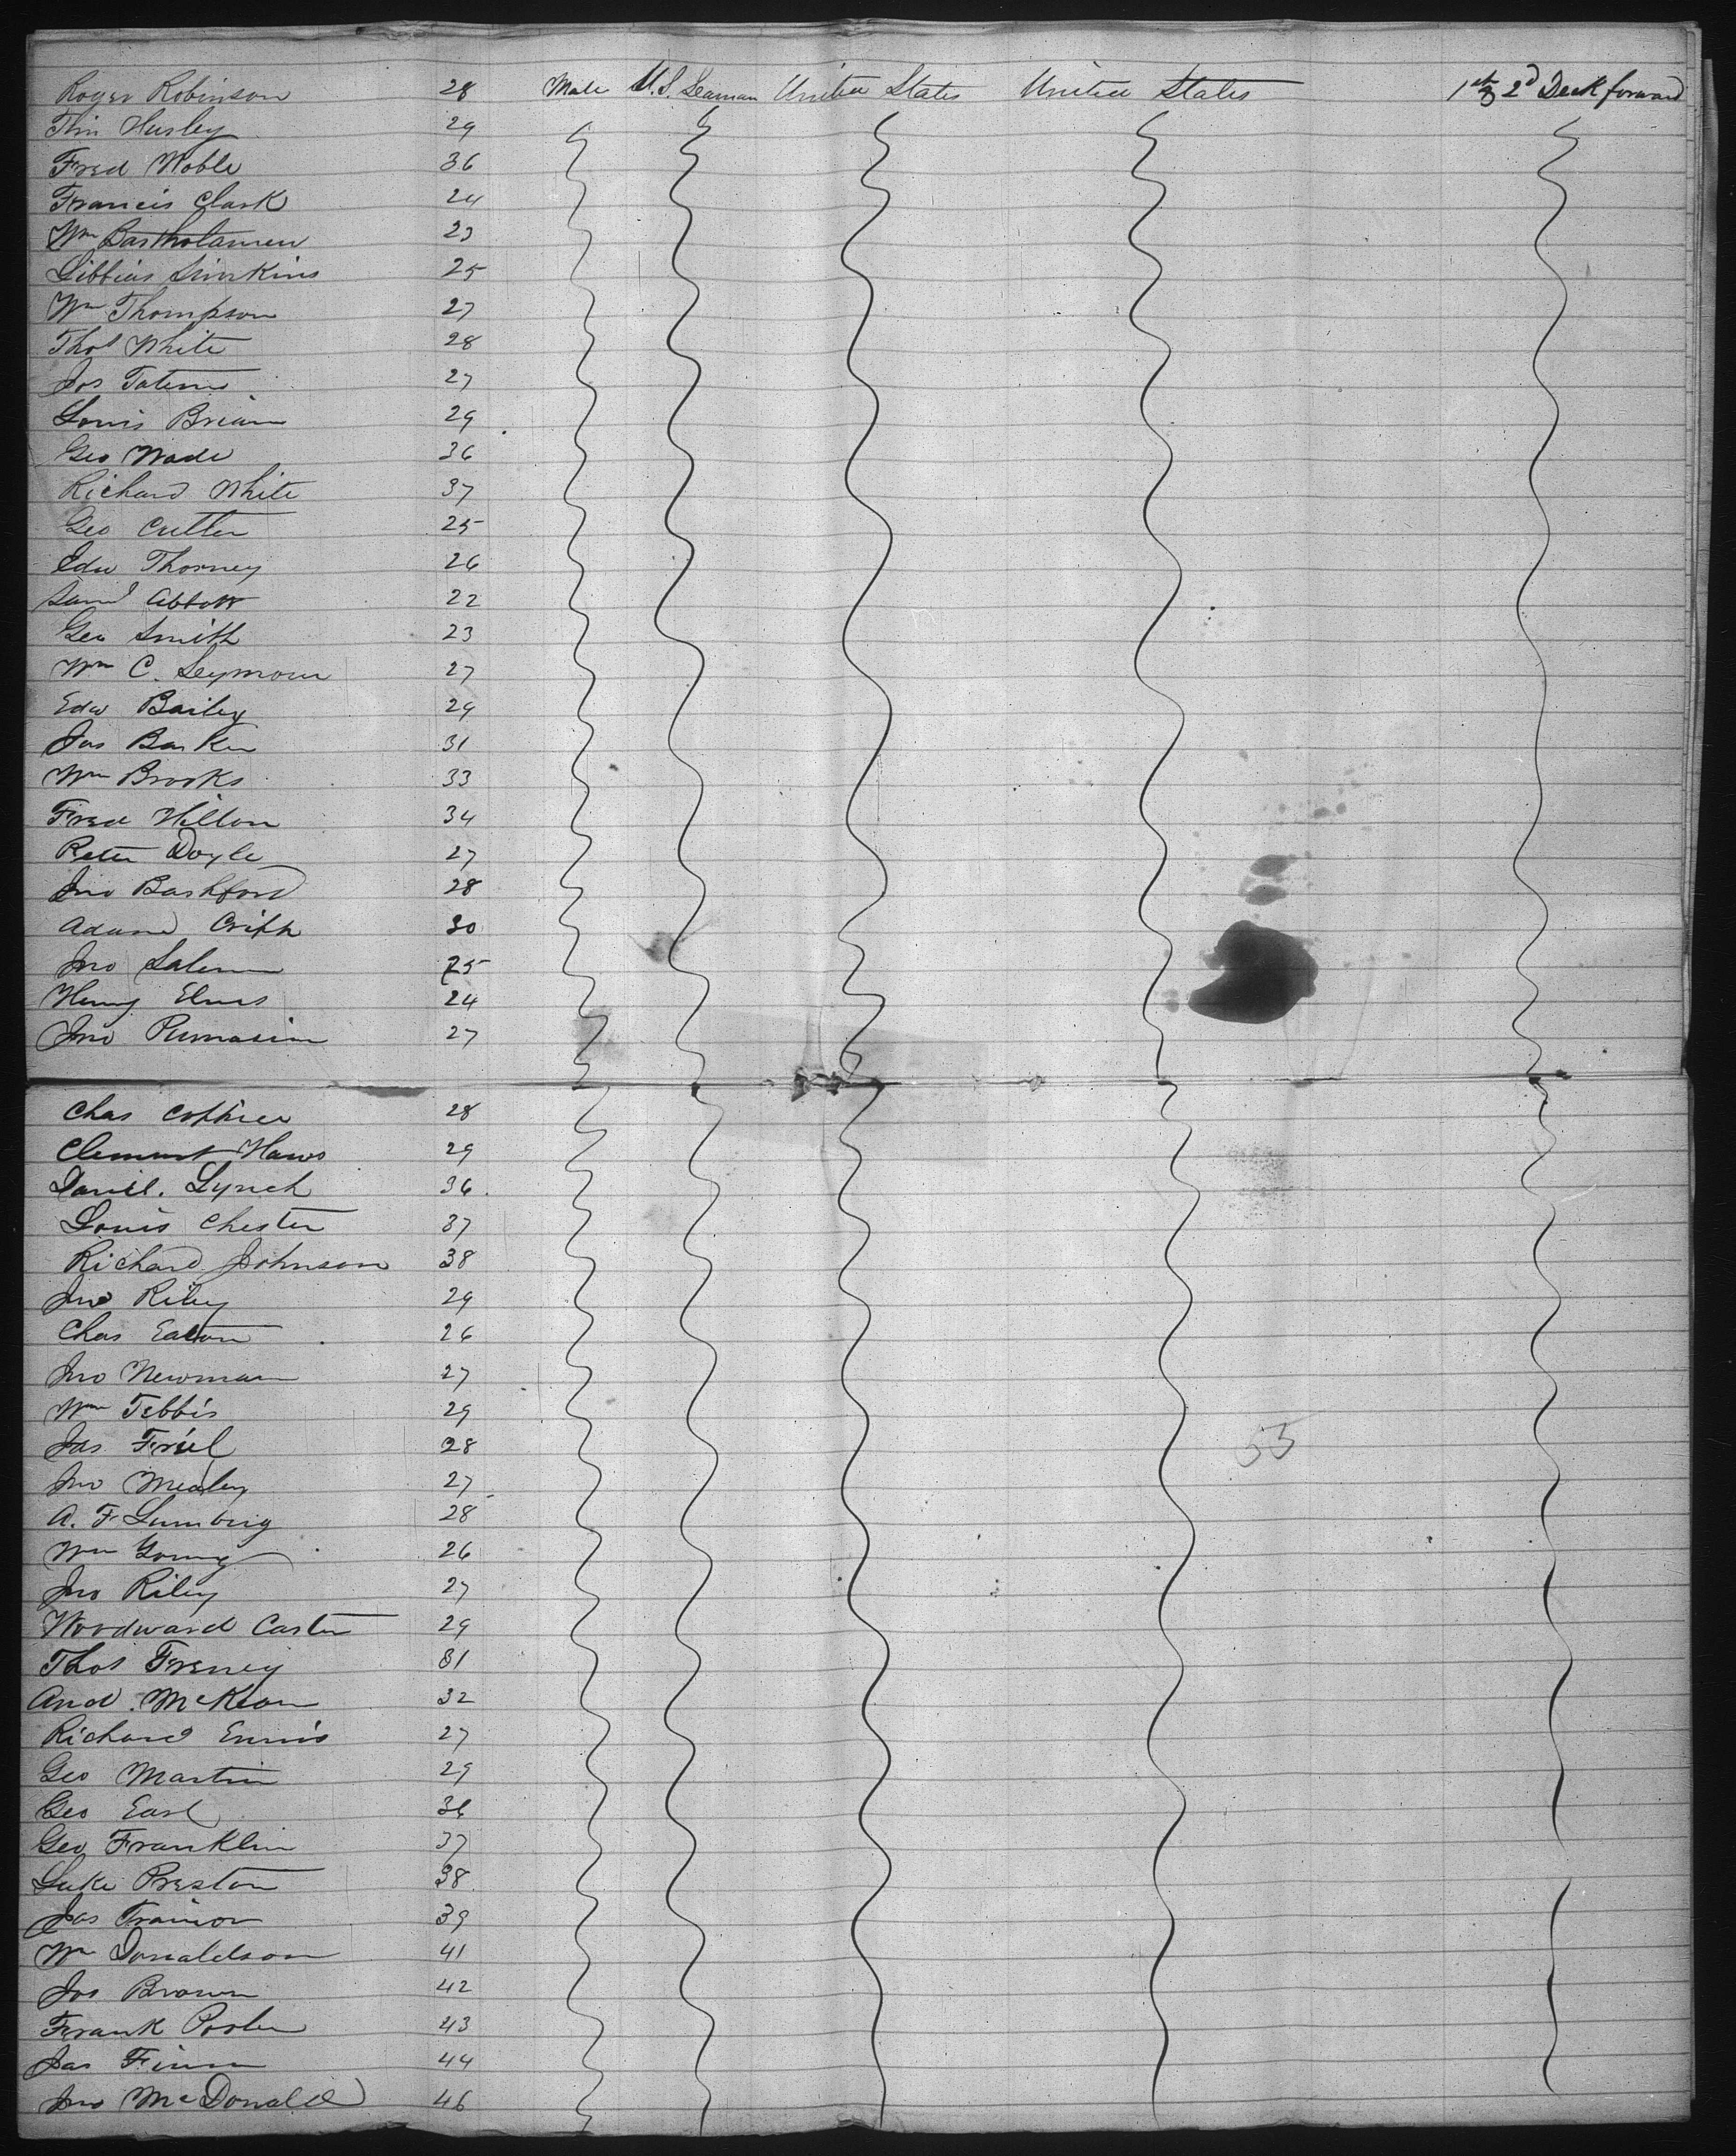 Roger Robinson 28 Male U.S. Seaman United States United States 1st & 2d Deck forward
Tim Hurley 29
Fred Noble 36
Francis Clark 24
Wm Bartholamew 23
Simkins 25
Wm Thompson 27
Thos White 28
Jos Tatem 27
Louis Brian 29
Geo Wade 36
Richard White 37
Geo Cutler 25
Edw Thorney 26
Saml Abbott 22
Geo Smith 23
Wm C. Seymour 27
Edw Bailey 29
Jas Barker 31
Wm Brooks 33
Fred Hilton 34
Peter Doyle 27
Jno Bashford 28
Adam 30
Jno Salem 25
Henry Elms 24
Jno 27
Chas 28
Clement Haws 29
Daniel. Lynch 36
Louis Chester 37
Richard Johnson 38
Jno Riley 29
Chas Eaton 26
Jno Newman 27
Wm Tebbis 29
Jas Friel 28
Jno Mealey 27
A. F. 28
Wm Young 26
Jno Riley 27
Woodward Carter 29
Thos Freney 31
And. McKeon 32
Richard Ennis 27
Geo Martin 29
Geo Earl 36
Geo Franklin 37
Luke Preston 38
Jas Trainor 39
Wm Donaldson 41
Jos Brown 42
Frank Porter 43
Jas Finn 44
Jno McDonald 46
53